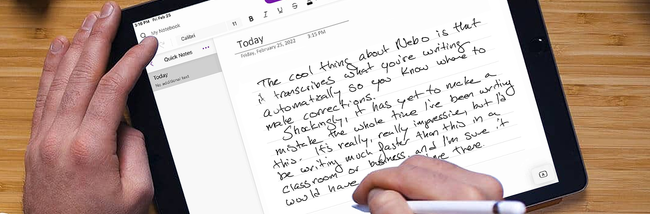 3:15 PM Fri Feb 25
My Notebook
Calibri
11 B I U S
Quick Notes
Today
No additional text
Today
Friday, February 25, 2022 3:15 PM
The cool thing about Nebo is that
it transcribes what you're writing
automatically so you know where to
make corrections.
Shockingly, it has yet to make a
mistake the whole time I've been writing
this. It's really, really impressive, but I'd
be writing much faster than this in a
classroom or business and I'm sure it
would have there.